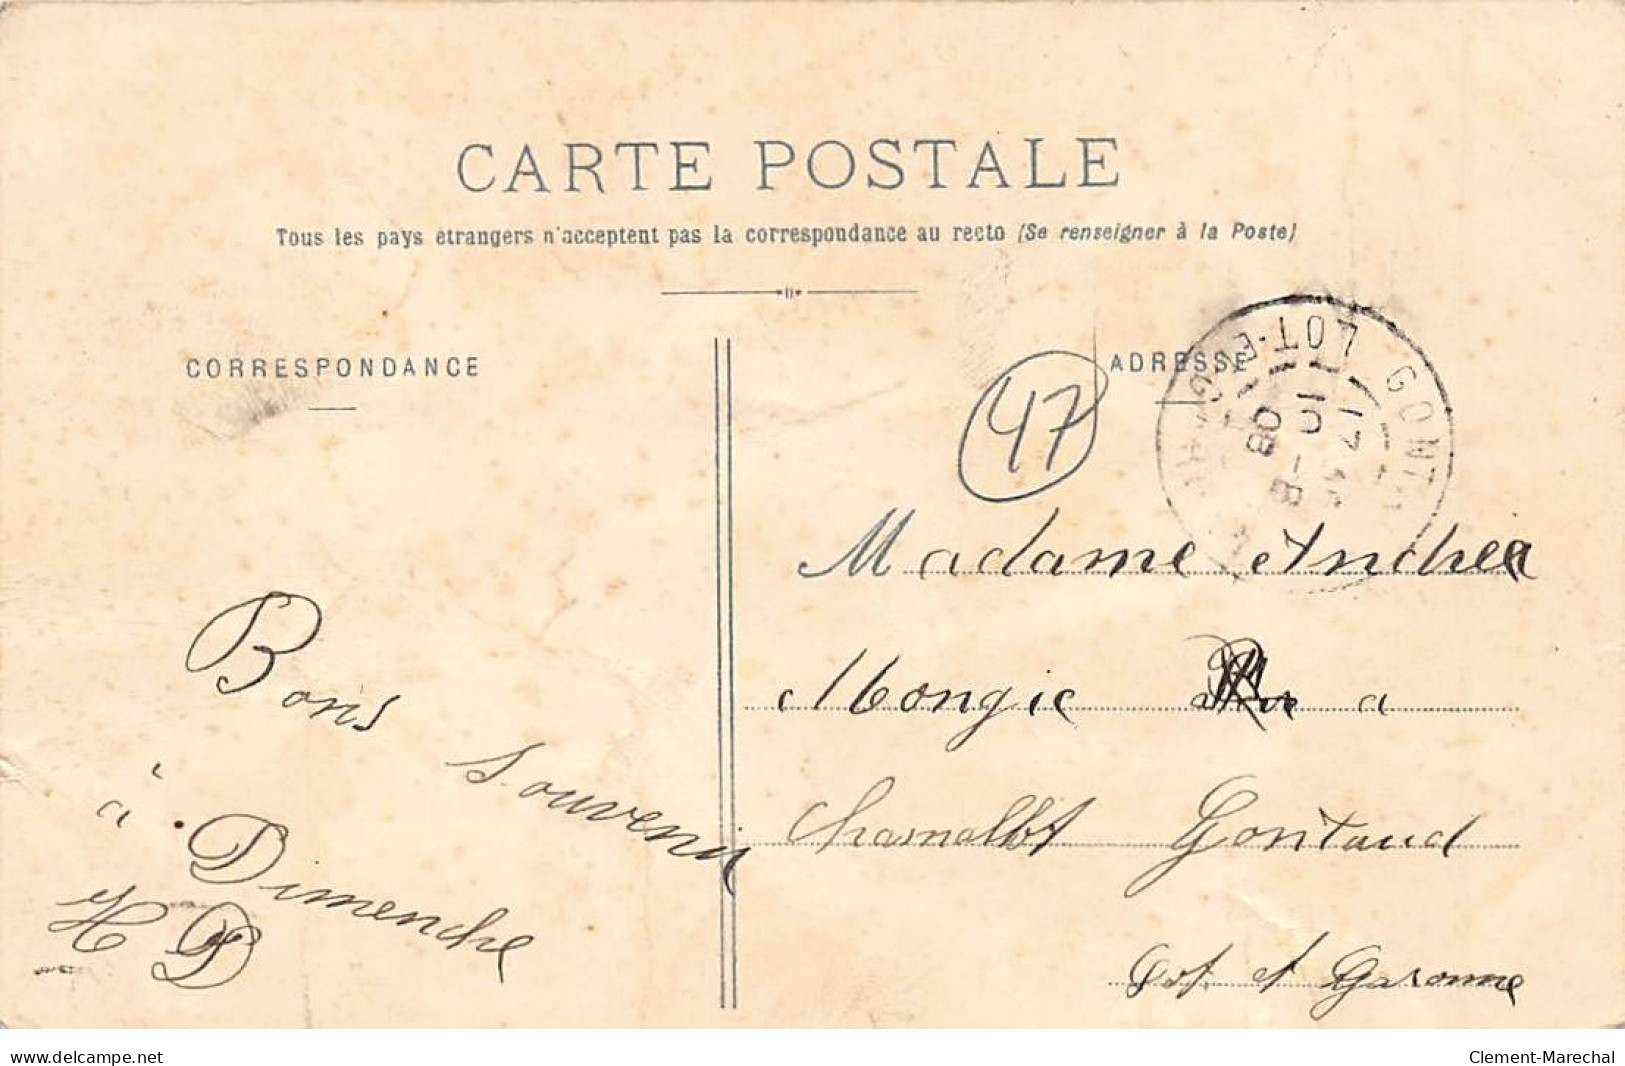 CARTE POSTALE
Tous les pays étrangers n'acceptent pas la correspondance au recto (Se renseigner à la Poste)
CORRESPONDANCE
ADRESSE
47
LOT-ET-G GONT
17
10 -8
08
Madame Andrea
Mongie a
Chamalbt Gontaud
Lot et Garonne
Bons
souvenir
à Dimenche
H D
www.delcampe.net
Clement-Marechal